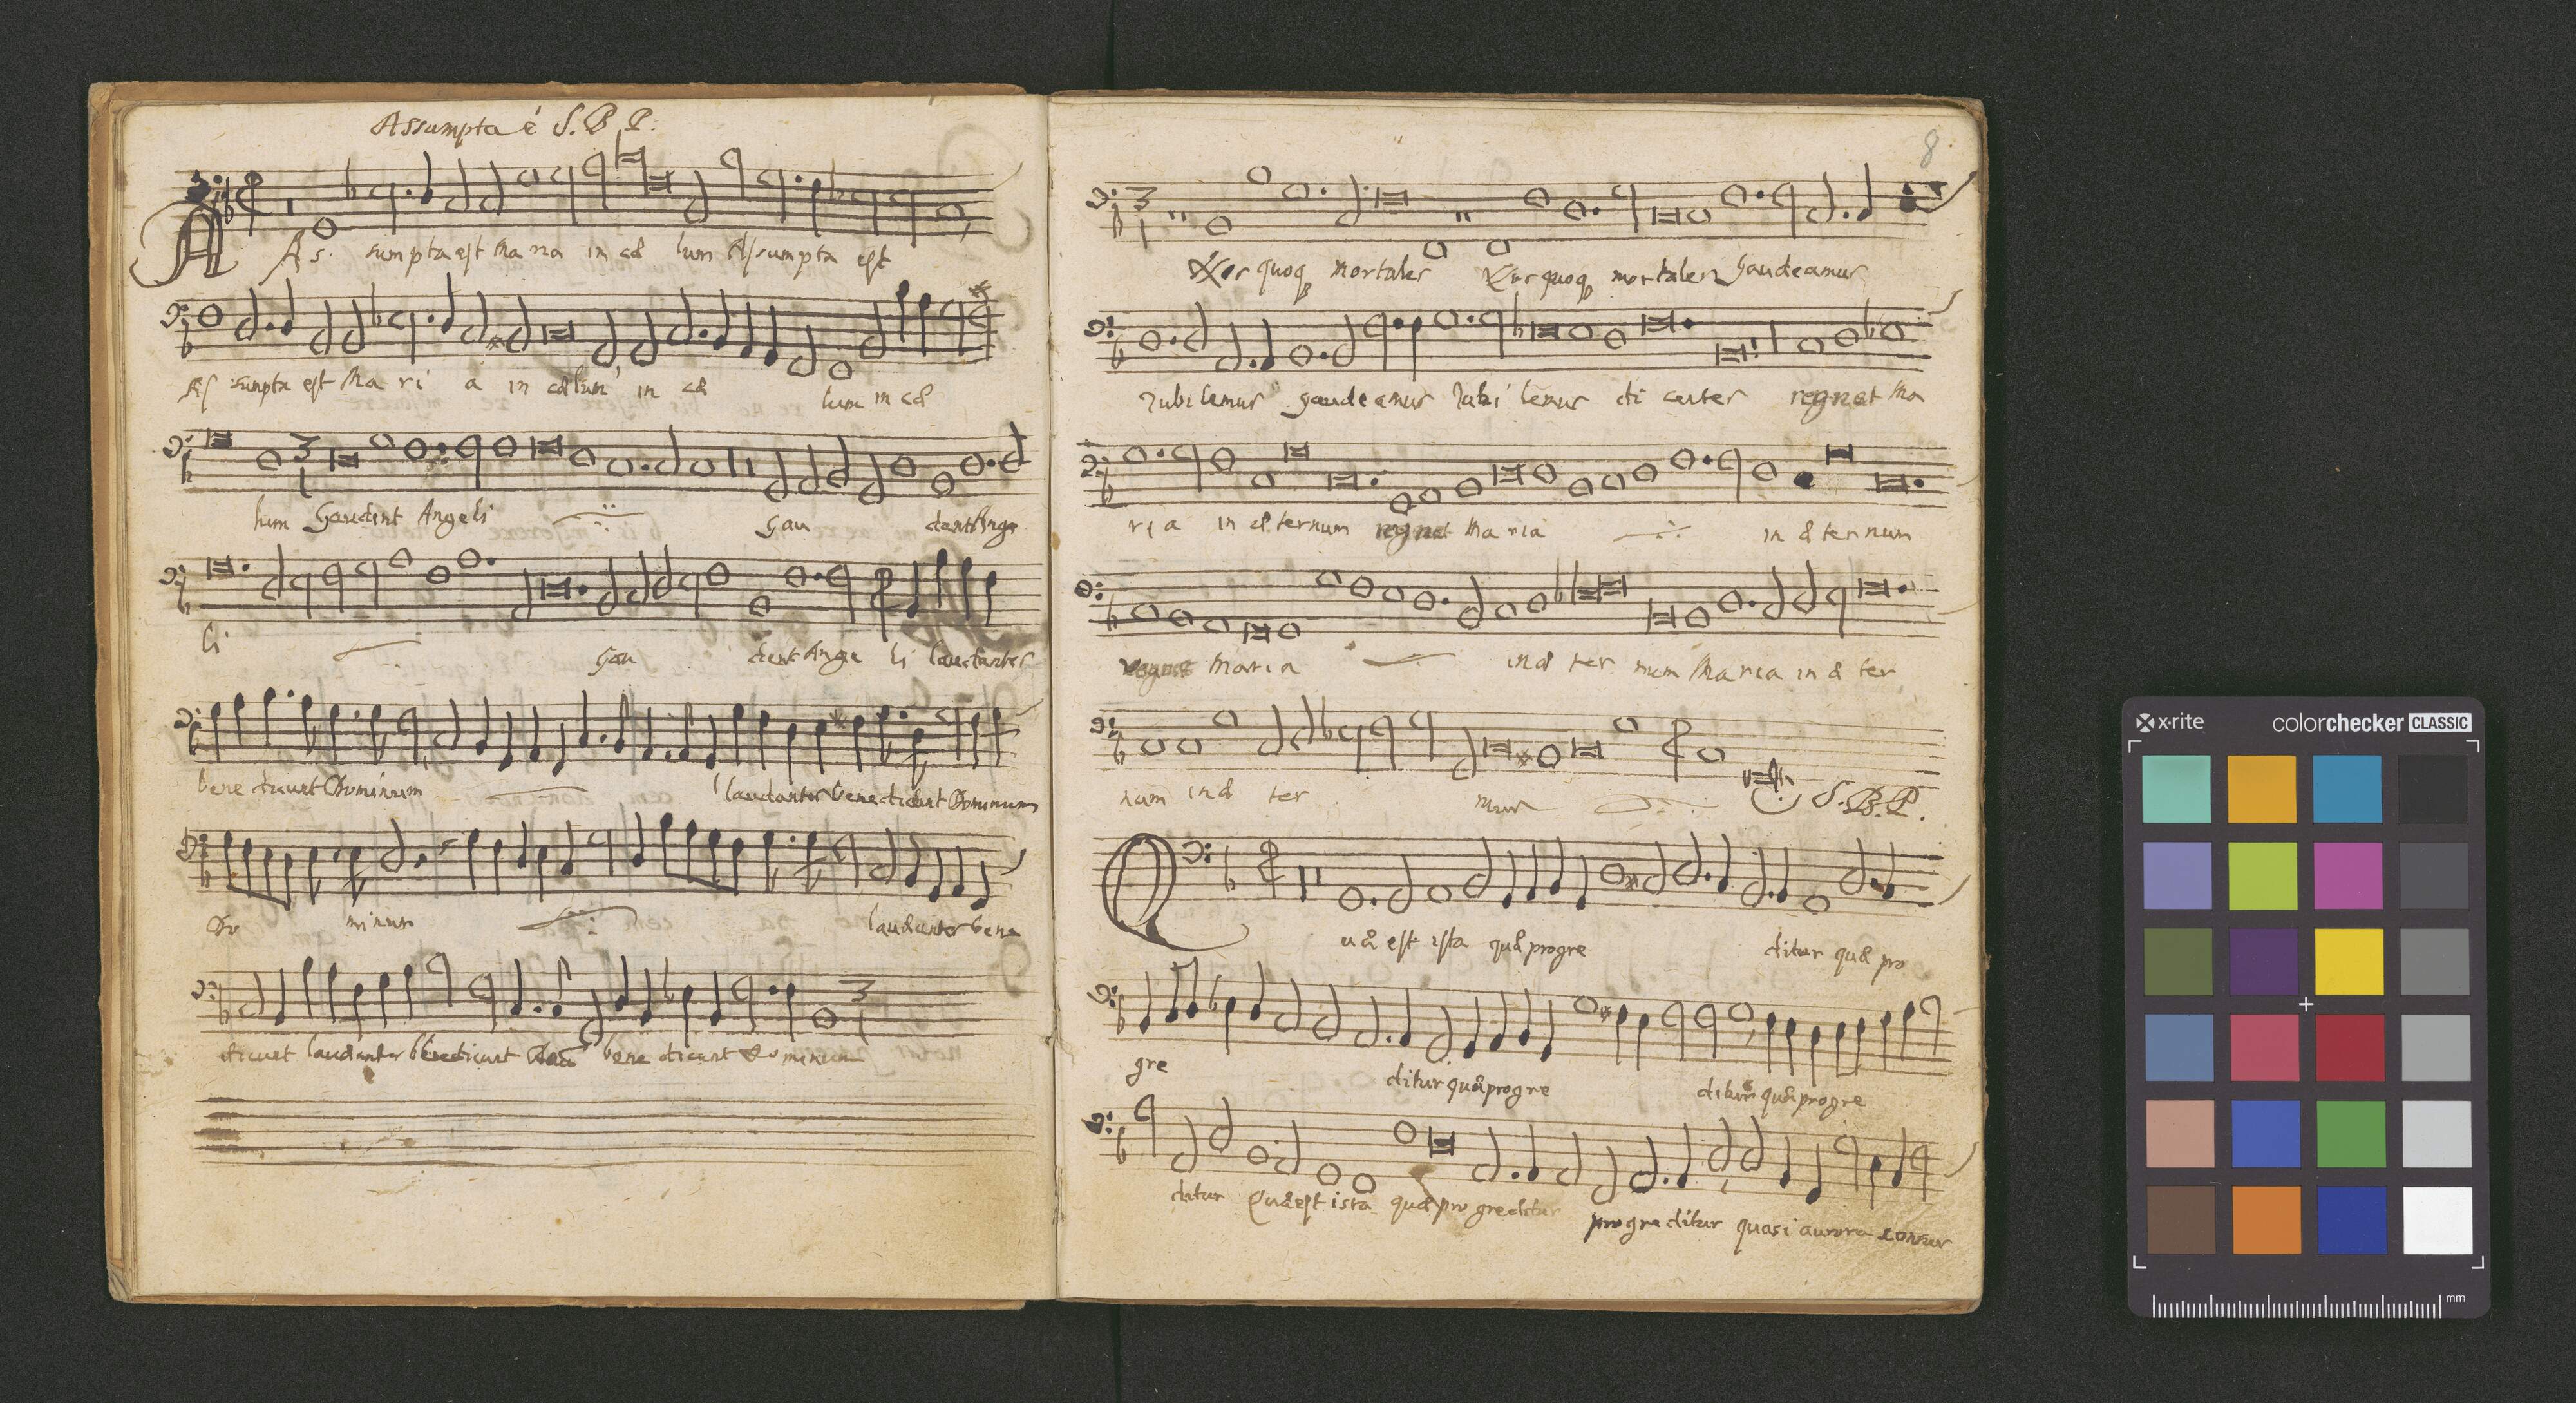 Assumpta è S. B P.
As. sumpta est Maria in cæ lum Assumpta est
As sumpta est Ma ri a in cælum in cæ lum in cæ
lum Gaudent Angeli Gau dent Ange
li Gau dent Ange li laudantes
bene dicunt Dominum laudantes benedicunt Dominum
Do minum laudantes bene
dicunt laudantes benedicunt bene dicunt Dominum
8
Nos quoq mortales Nos quoq mortales Gaudeamus
Jubilemus gaudeamus Jubi lemus di centes regnat Ma
ria in æternum regnat Maria in æ ternum
regnat Maria in æ ter num Maria in æ ter
num in æ ter num
S. B. P.
Quæ est ista quæ progre ditur quæ pro
gre ditur quæ progre ditur quæ progre
ditur Quæ est ista quæ pro greditur progreditur quasi aurora consur
x-rite colorchecker CLASSIC
mm